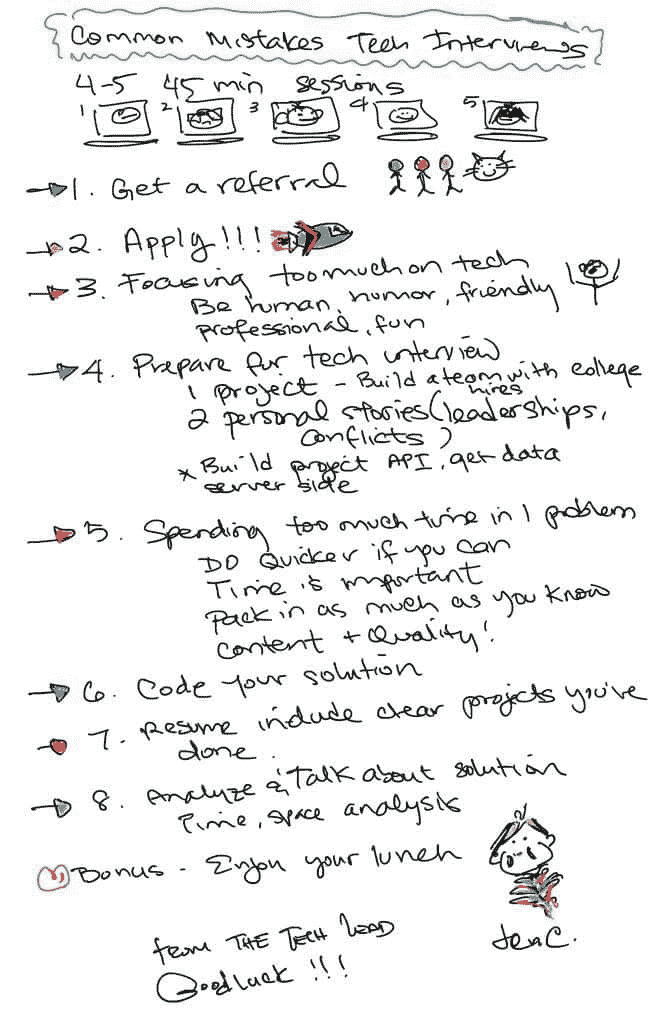 Common Mistakes Tech Interviews
4-5 45 min sessions
1 2 3 4 5
1. Get a referral
2. Apply!!!
3. Focusing too much on tech
Be human, humor, friendly
professional, fun
4. Prepare for tech interview
1 project - Build a team with college
hires
2 personal stories (leaderships,
conflicts)
* Build project API, get data
server side
5. Spending too much time in 1 problem
DO Quicker if you can
Time is important
Pack in as much as you know
content + Quality!
6. Code your solution
7. Resume include clear projects you've
done.
8. Analyze & Talk about solution
Time, space analysis
Bonus - Enjoy your lunch
from THE TECH LEAD
Good luck !!!
JenC.